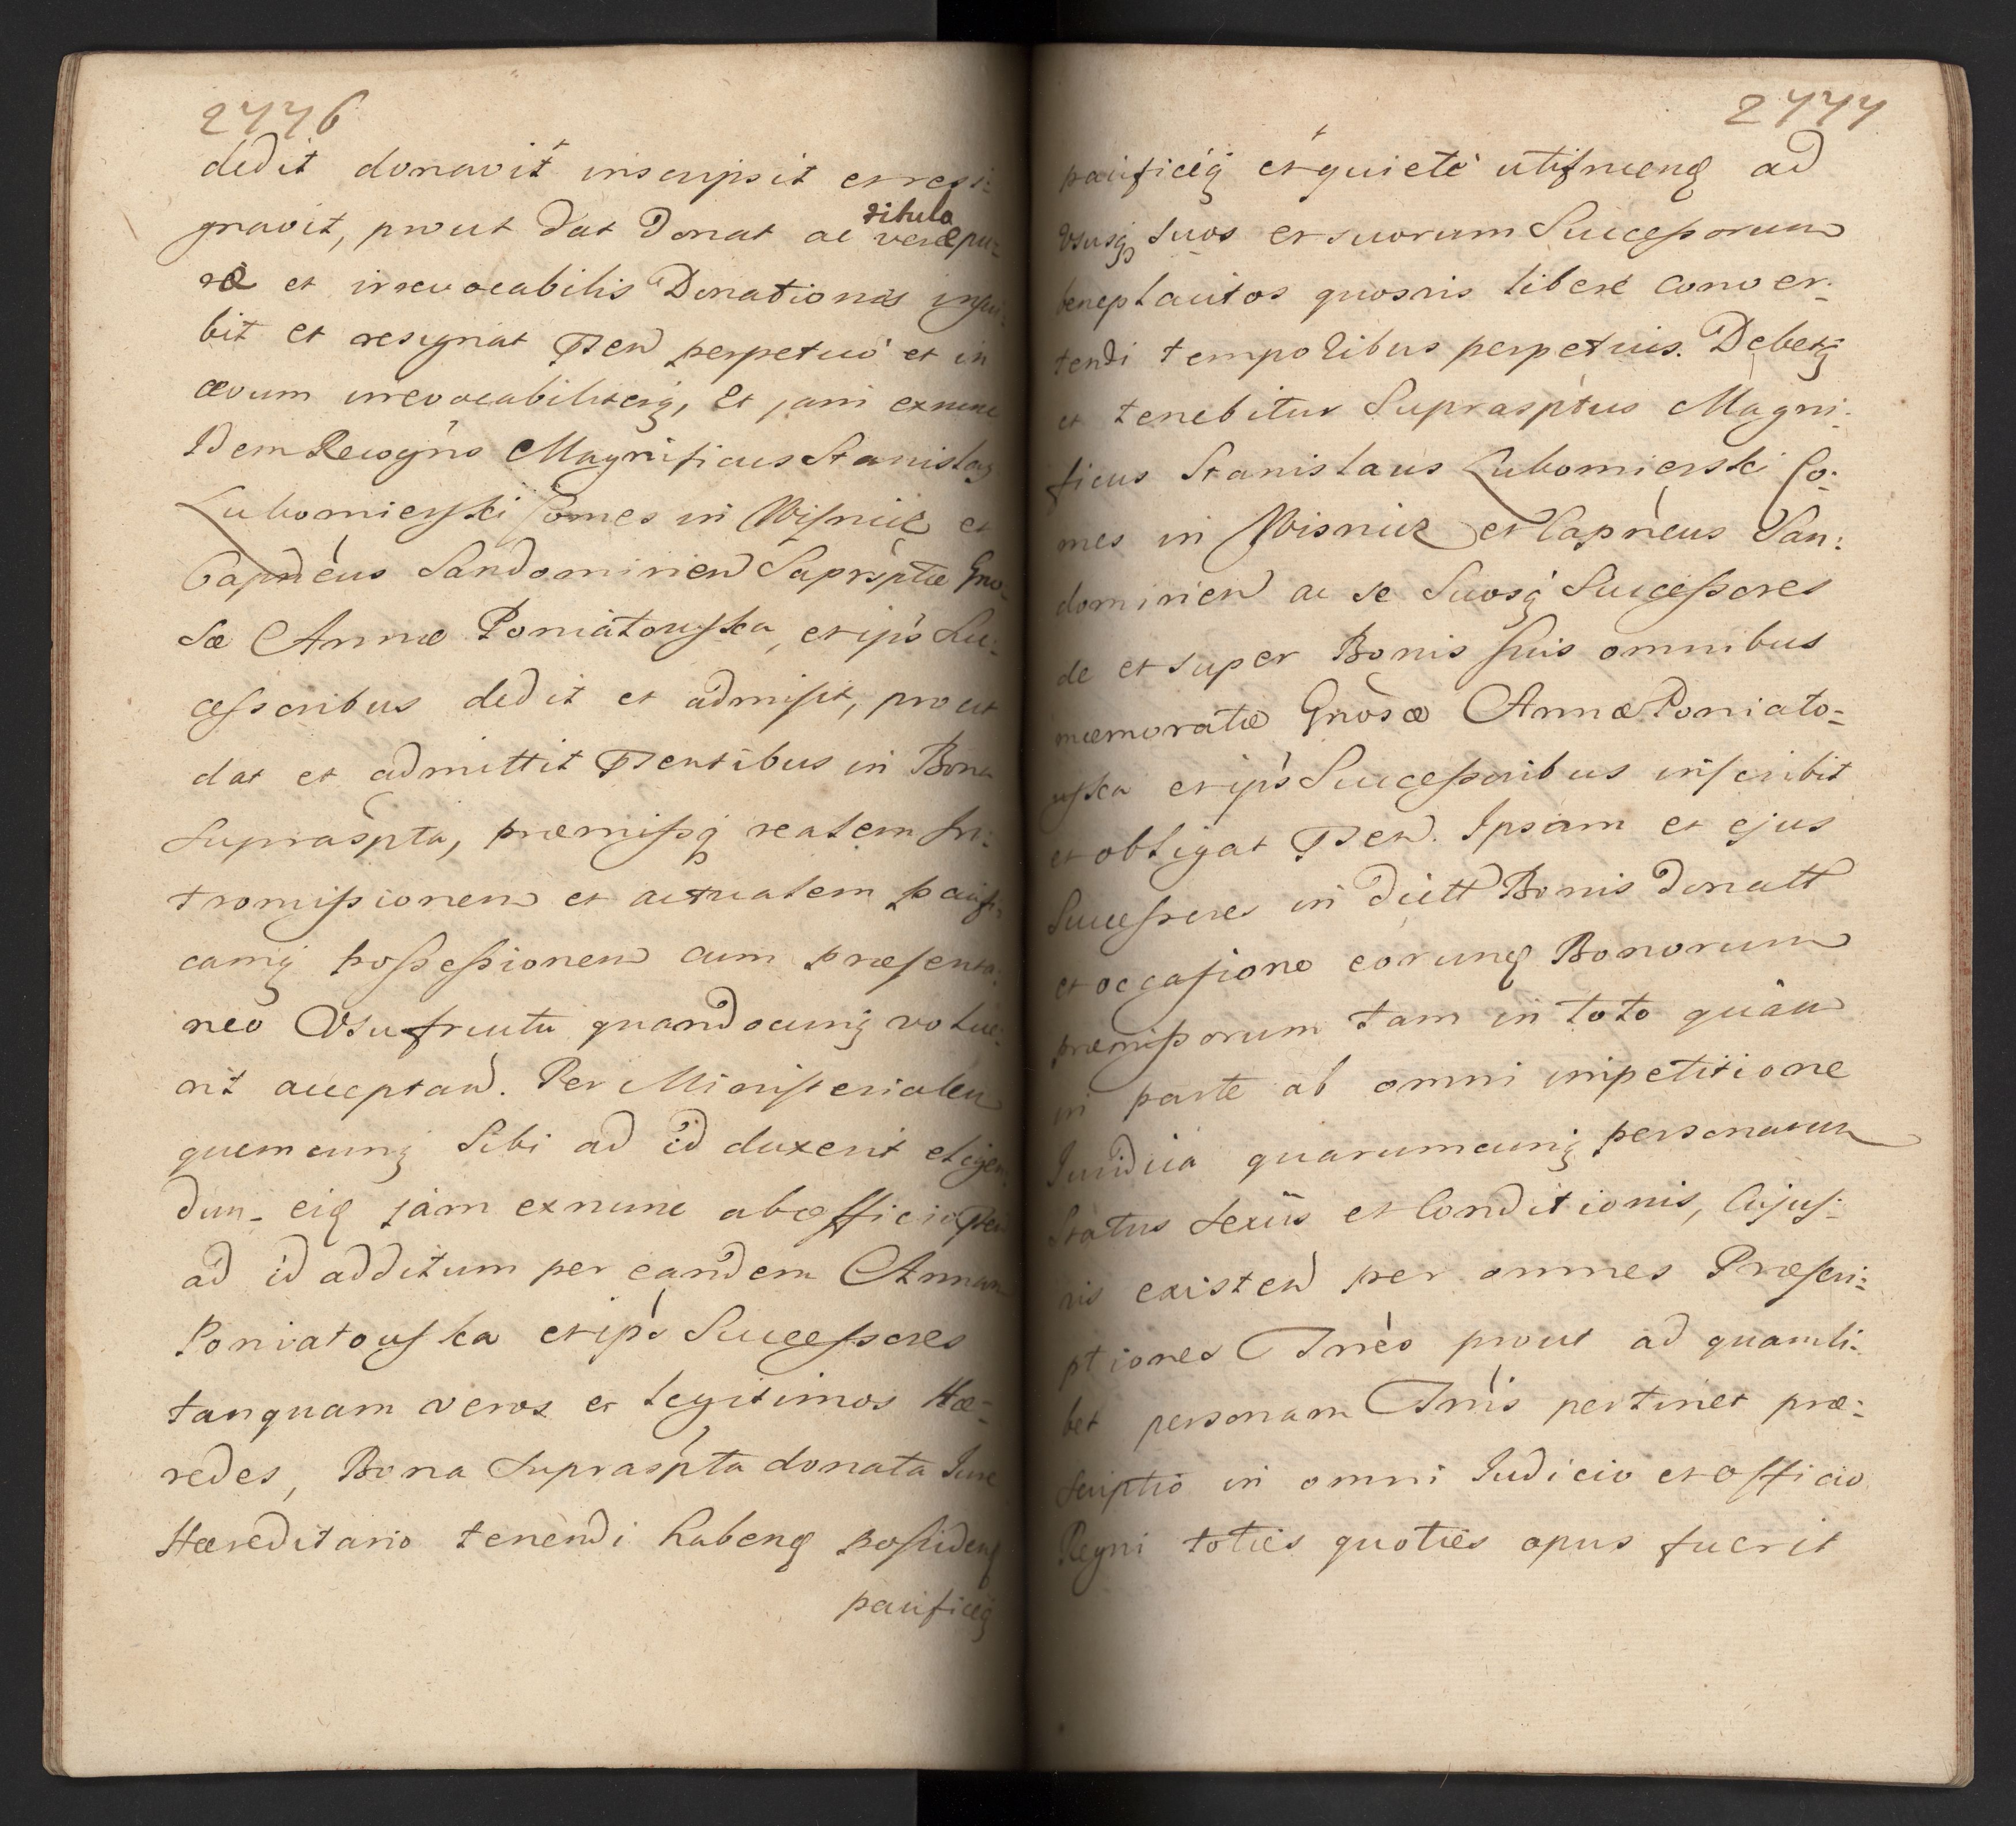 2776
dedit donavit inscripsit et resi:
titulo
gnavit, prout dat donat ac veræ pu:
ræ et irrevocabilis Donationis inscri:
bit et resignat Pñen perpetuò et in
ævum irrevocabiliterq, Et jam exnunc
Idem Recogñs Magnificus Stanislaq
Lubomierski Comes in Wisnicz et
Capñeus Sandomirien Suprasptæ Gno:
sæ Annæ Poniatowska, et ip's Suc:
cessoribus dedit et admisit, prout
dat et admittit Pñentibus in Bona
supraspta, præmissq realem In:
tromissionem et actualem pacifi:
camq possessionem cum præsenta:
neo Vsufructu quandocunq volue:
rit acceptan. Per Ministerialem
quemcunq Sibi ad id duxerit eligen:
dum eiq jam exnunc ab officio Pñen
ad id additum per eandem Annam
Poniatowska et ip's Successores
tanquam veros et legitimos Hæ:
redes, Bona supraspta donata Jure
Hæreditario tenendi habenq possidenq
pacificeq
2777
pacificeq et quiete utifruenq ad
Vsusq suos et suorum Successorum
beneplacitos quosvis libere conver:
tendi temporibus perpetuis. Debetq
et tenebitur Suprasptus Magni:
ficus Stanislaus Lubomierski Co:
mes in Wisnicz et Capñeus San:
domirien ac se Suosq Successores
de et super Bonis suis omnibus
memoratæ Gnosæ Annæ Poniato:
wska et ip's Successoribus inscribit
et obligat Pñen. Ipsam et ejus
Successores in dictt Bonis donatt
et occasione eorunq Bonorum
præmissorum tam in toto quam
in parte ab omni impetitione
Juridica quarumcunq personarum
Status sexus et Conditionis, Cujus:
vis existen per omnes Præscri:
ptiones Trreo prout ad quamli:
bet personam Trris pertinet præ:
scriptio in omni Judicio et officio
Regni toties quoties opus fuerit